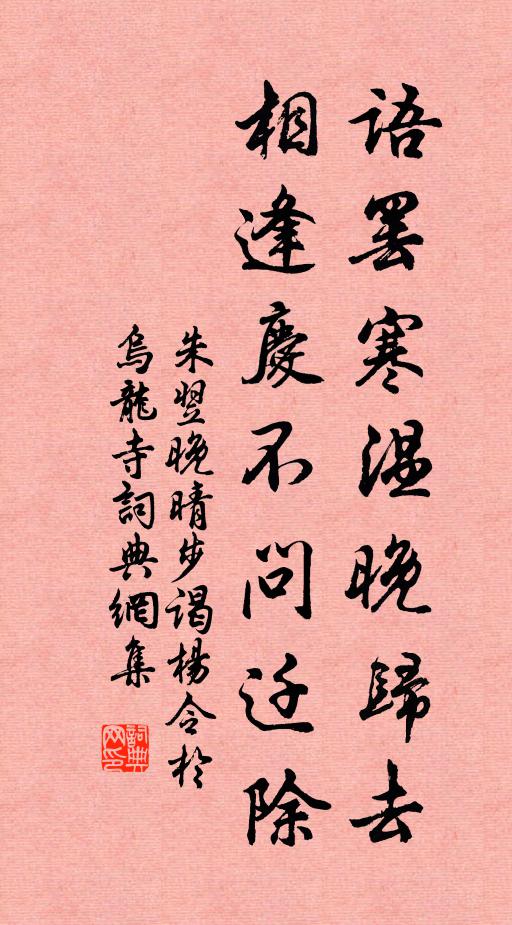 語罷寒溫晚歸去
相逢慶不問迁除
朱翌晚晴步謁楊令於
烏龍寺詞典網集
詞典网印